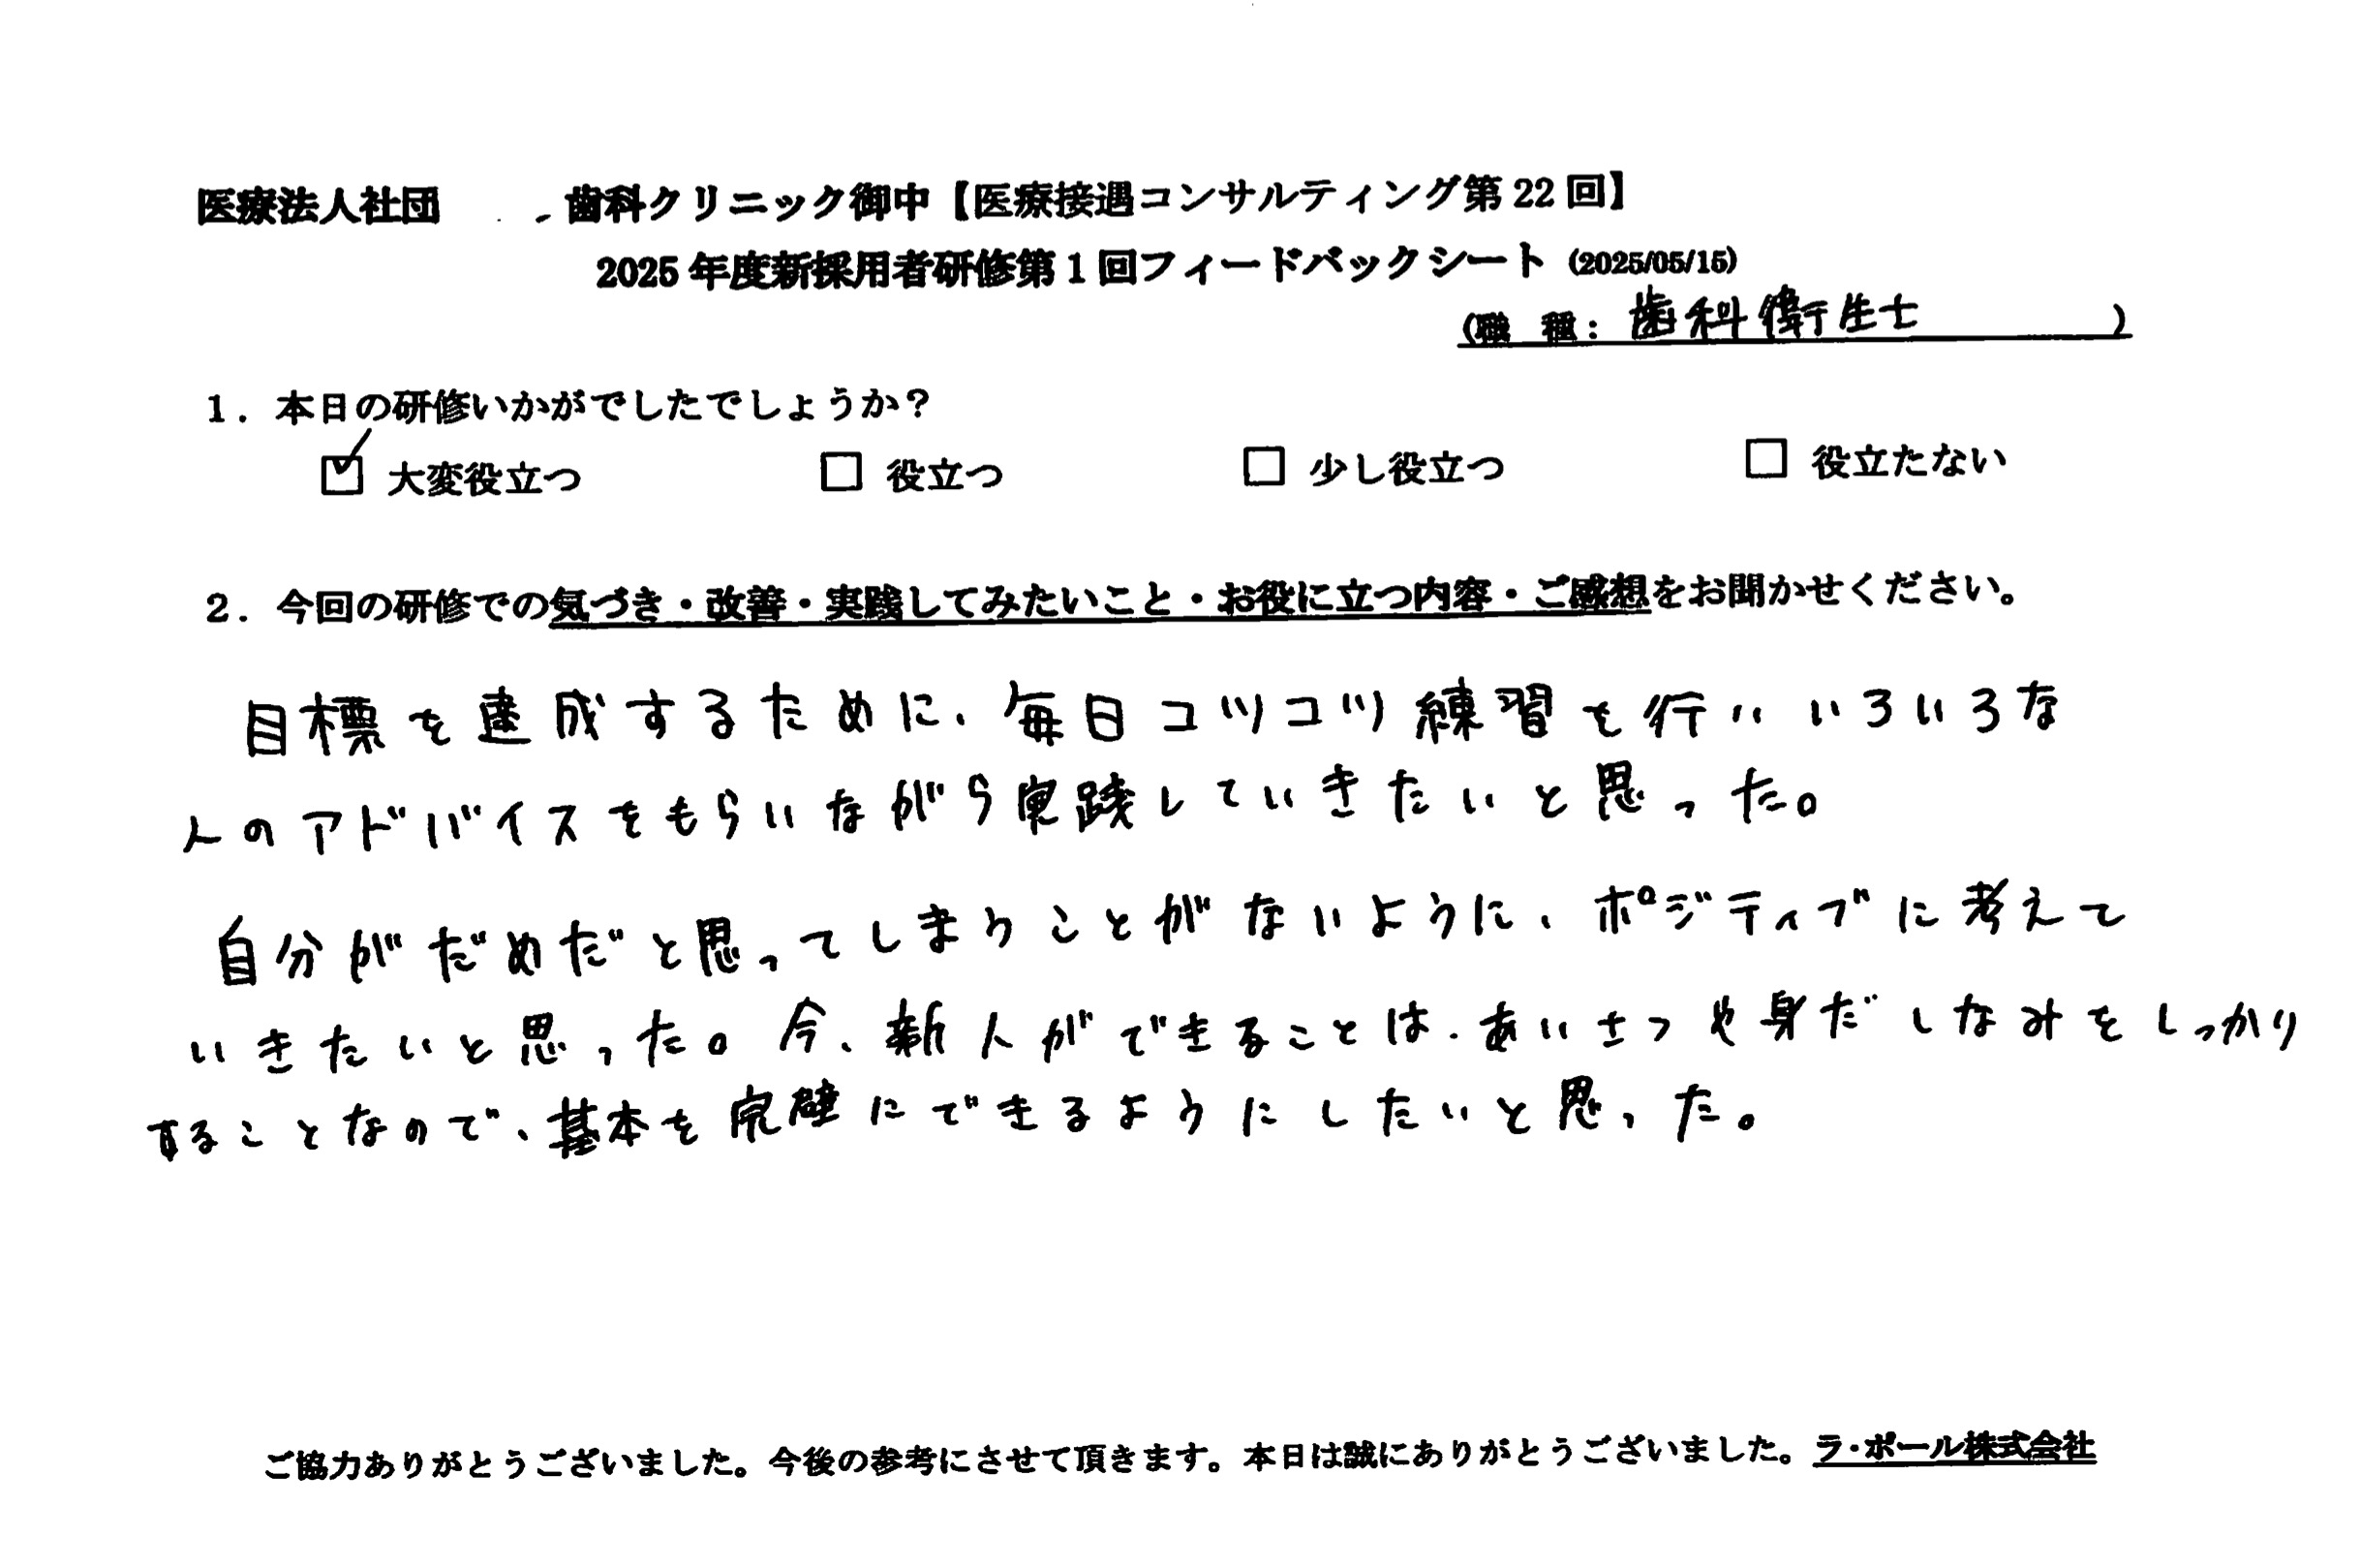 医療法人社団 歯科クリニック御中【医療接遇コンサルティング第22回】
2025年度新採用者研修第1回フィードバックシート (2025/05/15)
(職 種: 歯科衛生士 )
1. 本日の研修いかがでしたでしょうか?
☑ 大変役立つ □ 役立つ □ 少し役立つ □ 役立たない
2. 今回の研修での気づき・改善・実践してみたいこと・お役に立つ内容・ご感想をお聞かせください。
目標を達成するために、毎日コツコツ練習を行い いろいろな
人のアドバイスをもらいながら実践していきたいと思った。
自分がだめだと思ってしまうことがないように、ポジティブに考えて
いきたいと思った。今、新人ができることは、あいさつや身だしなみをしっかり
することなので、基本を完璧にできるようにしたいと思った。
ご協力ありがとうございました。今後の参考にさせて頂きます。本日は誠にありがとうございました。ラ・ポール株式会社